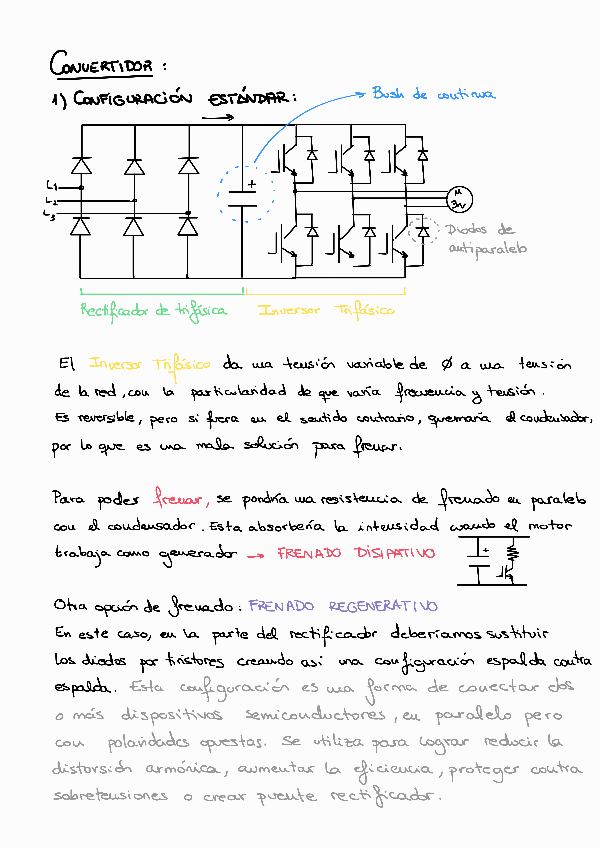 CONVERTIDOR:
1) CONFIGURACIÓN ESTÁNDAR:
Bush de continua
L1
L2
L3
+
M
3~
Diodos de
antiparalelo
Rectificador de trifásica
Inversor Trifásico
El Inversor Trifásico da una tensión variable de Ø a una tensión
de la red, con la particularidad de que varía frecuencia y tensión.
Es reversible, pero si fuera en el sentido contrario, quemaría el condensador,
por lo que es una mala solución para frenar.
Para poder frenar, se pondría una resistencia de frenado en paralelo
con el condensador. Esta absorbería la intensidad cuando el motor
trabaja como generador → FRENADO DISIPATIVO
+
Otra opción de frenado: FRENADO REGENERATIVO
En este caso, en la parte del rectificador deberíamos sustituir
los diodos por tiristores creando así una configuración espalda contra
espalda. Esta configuración es una forma de conectar dos
o más dispositivos semiconductores, en paralelo pero
con polaridades opuestas. Se utiliza para lograr reducir la
distorsión armónica, aumentar la eficiencia, proteger contra
sobretensiones o crear puente rectificador.